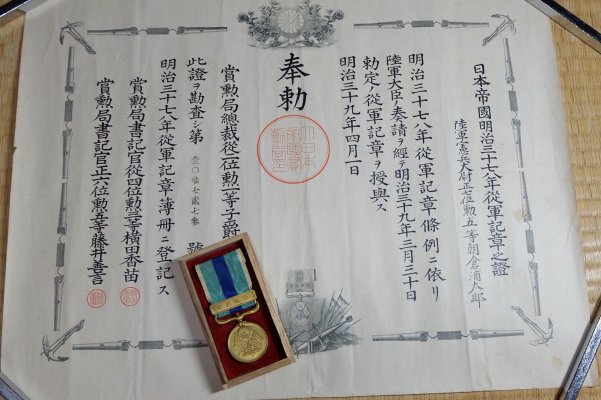 日本帝國明治三十七八年從軍記章之證
陸軍憲兵大尉正七位勲五等朝倉酒太郎
明治三十七八年從軍記章條例ニ依リ
陸軍大臣ノ奏請ヲ經テ明治三十九年三月三十日
勅定ノ從軍記章ヲ授與ス
明治三十九年四月一日
奉勅
賞勲局總裁從二位勲一等子爵
此證ヲ勘査シ第壹〇〇七貳七參號
明治三十七八年從軍記章簿冊ニ登記ス
賞勲局書記官從四位勲三等横田香苗
賞勲局書記官正六位勲五等藤井善言